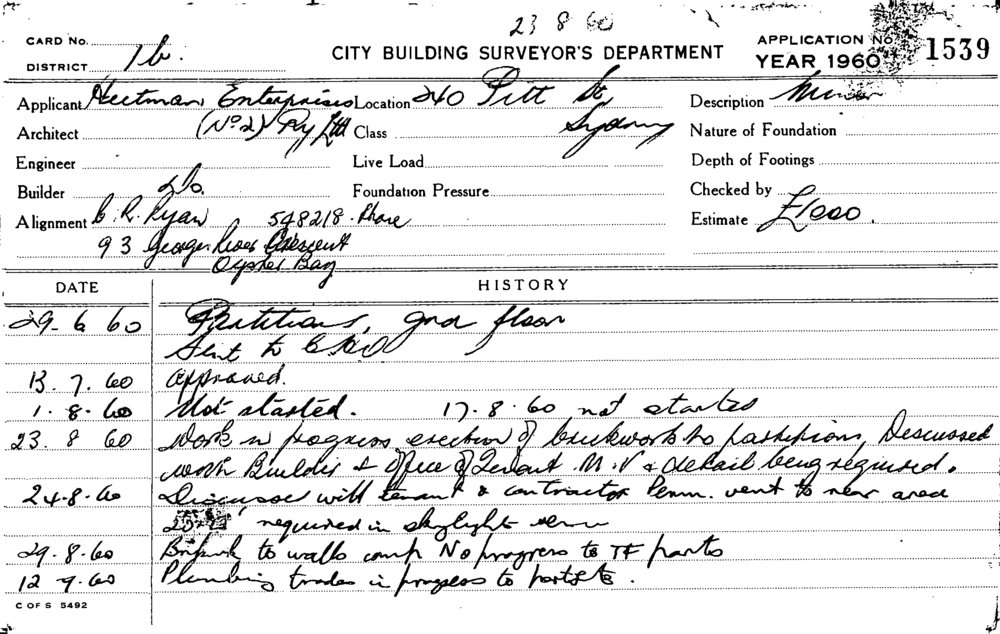 23 8 60
CARD No.
DISTRICT 1b.
CITY BUILDING SURVEYOR'S DEPARTMENT
APPLICATION No. 1539
YEAR 1960
Applicant Heitman Enterprises Location 240 Pitt St Description Minor
(No 2) Pty Ltd Sydney
Architect Class Nature of Foundation
Engineer Live Load Depth of Footings
Builder Do. Foundation Pressure Checked by
Alignment C. R. Ryan 548218. Phone Estimate £1000.
93 Georges River Crescent
Oyster Bay
DATE HISTORY
29. 6 60 Partitions, gnd floor
Sent to
13. 7. 60 Approved.
1. 8. 60 Not started. 17. 8. 60 not started
23. 8 60 Work in progress erection of brickwork to partitions, Discussed
with Builder & Office of Tenant M.V & detail being required.
24.8.60 Discussed with tenant & contractor Perm. vent to rear area
required in skylight
29. 8. 60 to walls comp No progress to TF parts
12 9. 60 Plumbing trades in progress to parts.
C OF S 5492